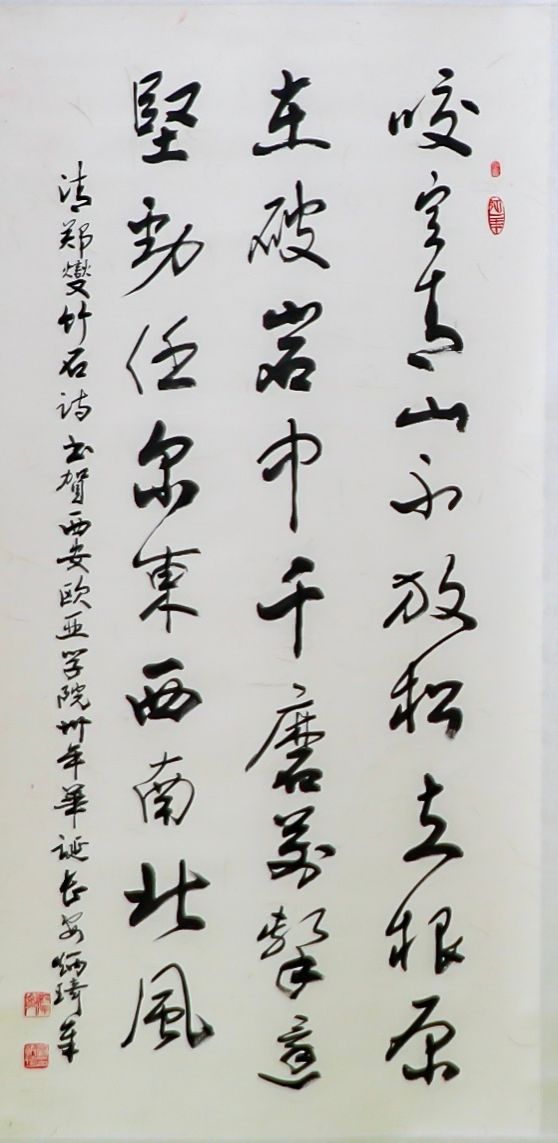 咬定青山不放松立根原
在破岩中千磨萬擊還
堅勁任尔東西南北風
清郑燮竹石诗书贺西安欧亚学院卅年華诞长安炳琦